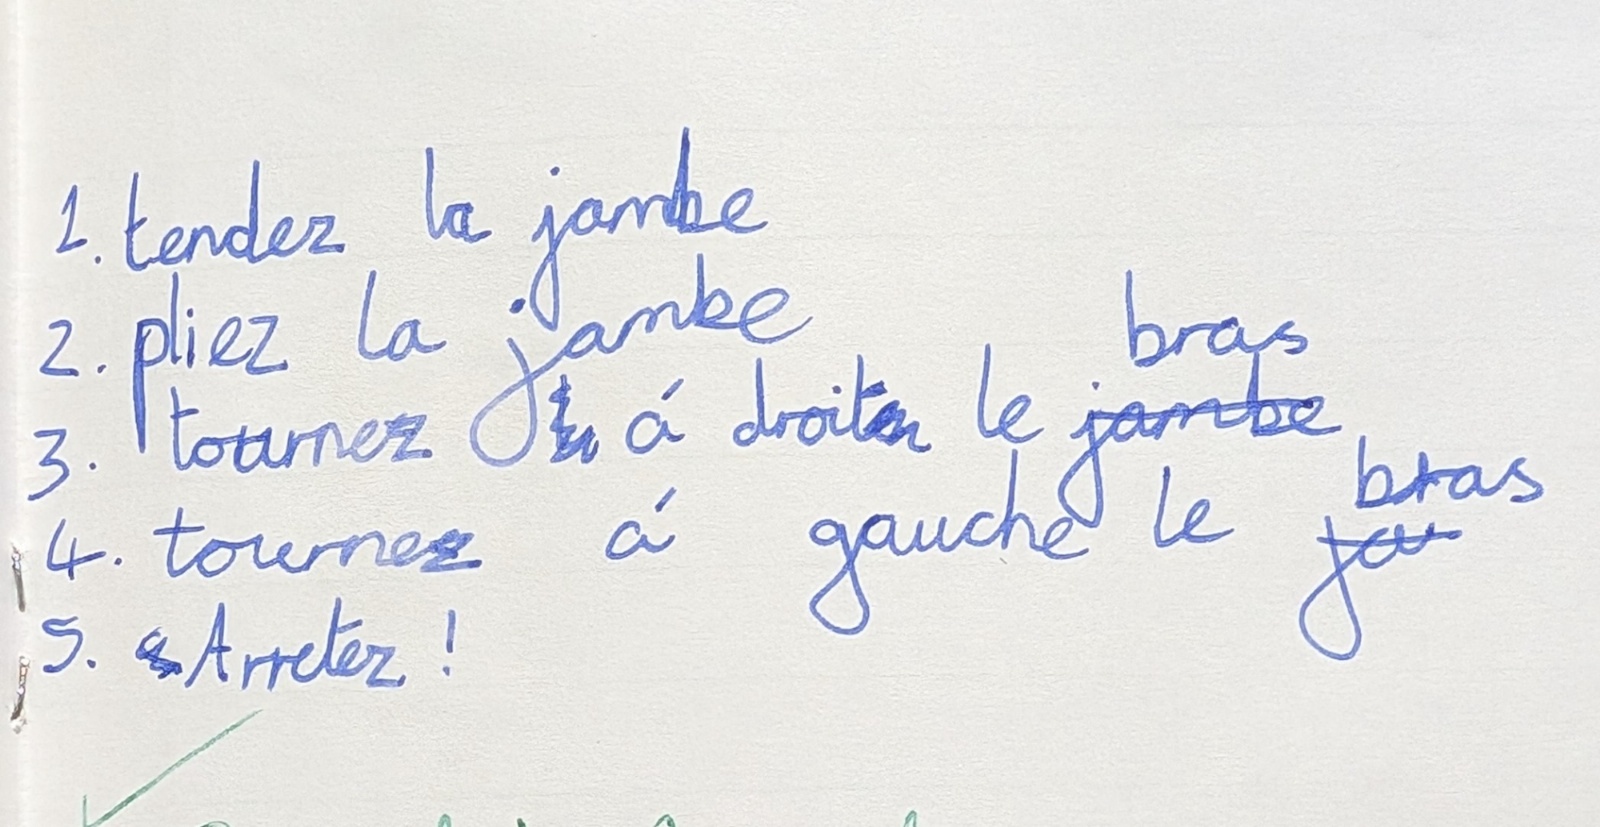 1. tendez la jambe
2. pliez la jambe
3. tournez á droite le jambe bras
4. tournez á gauche le ja bras
5. Arretez !